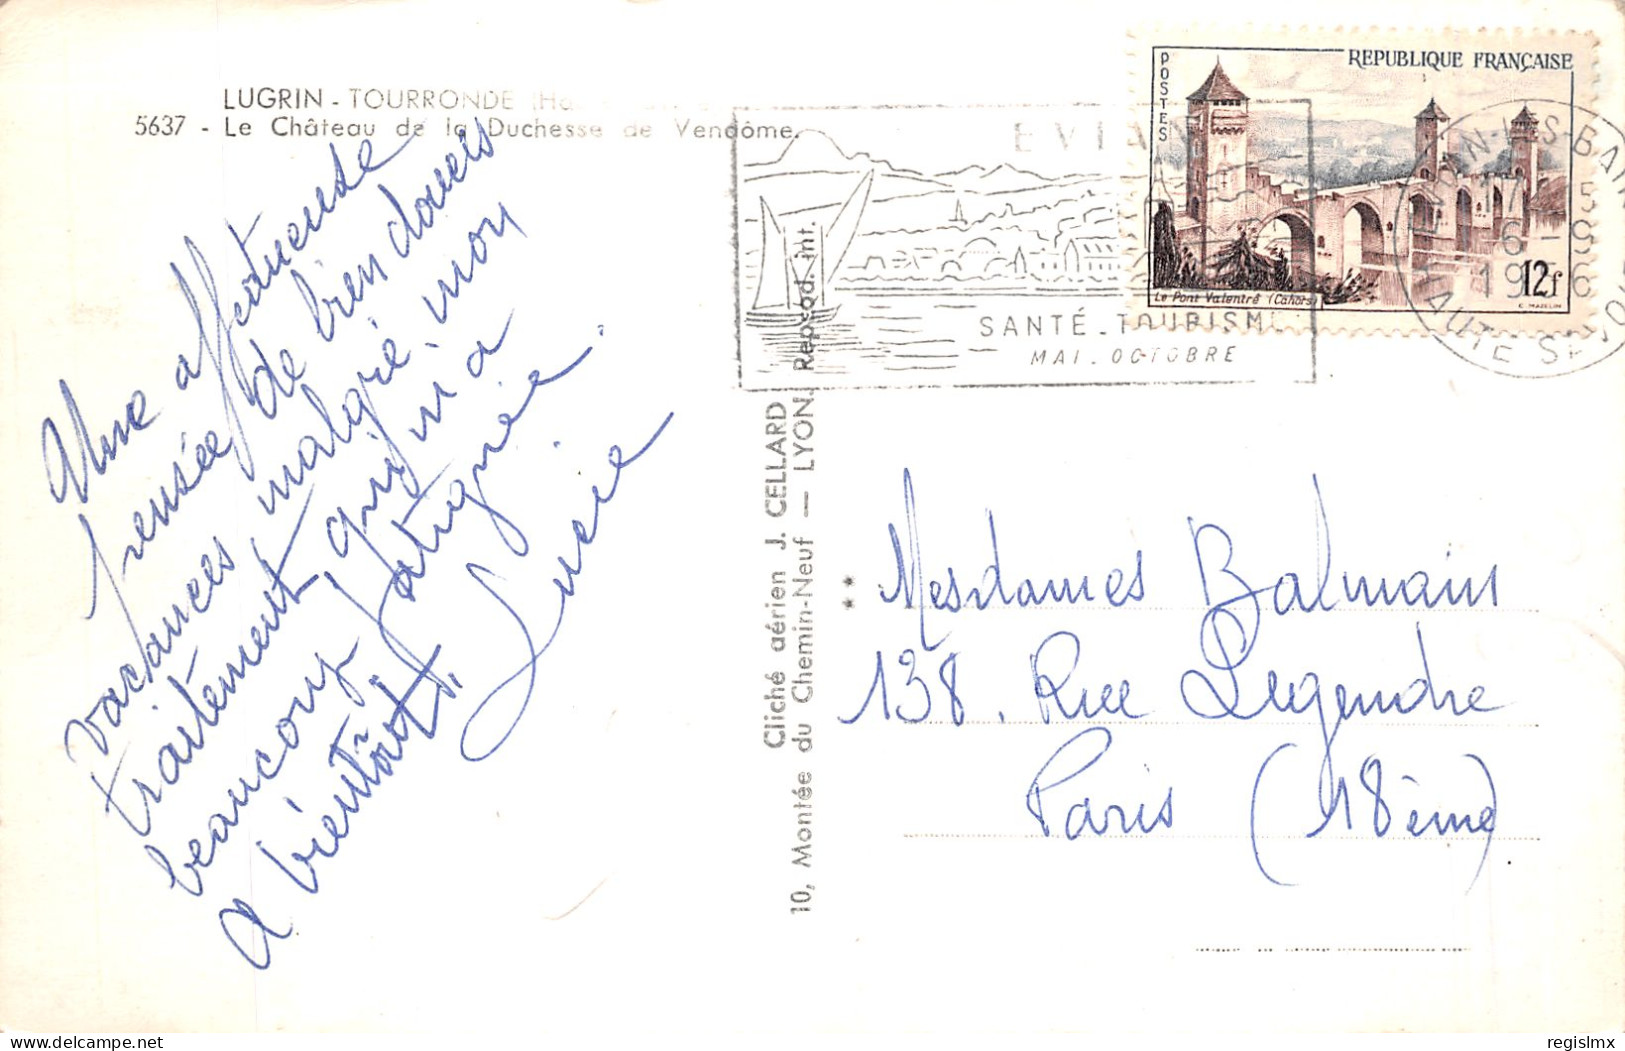 LUGRIN - TOURRONDE
5637 - Le Château de la Duchesse de Vendôme.
Une affectueuse
pensée de bien douces
vacances malgré mon
traitement, qui m'a
beaucoup fatiguée.
a bientôt.
Lucie
Cliché aérien J. CELLARD
10, Montée du Chemin-Neuf — LYON. Reprod. int.
EVIAN
SANTÉ _ TOURISME
MAI _ OCTOBRE
POSTES
REPUBLIQUE FRANÇAISE
Le Pont Valentré (Cahors)
12f
C. MAZELIN
EVIAN-LES-BAINS
17
6 -
1956
HAUTE SAVOIE
Mesdames Balmain
138. Rue Legendre
Paris (18ème)
regislmx